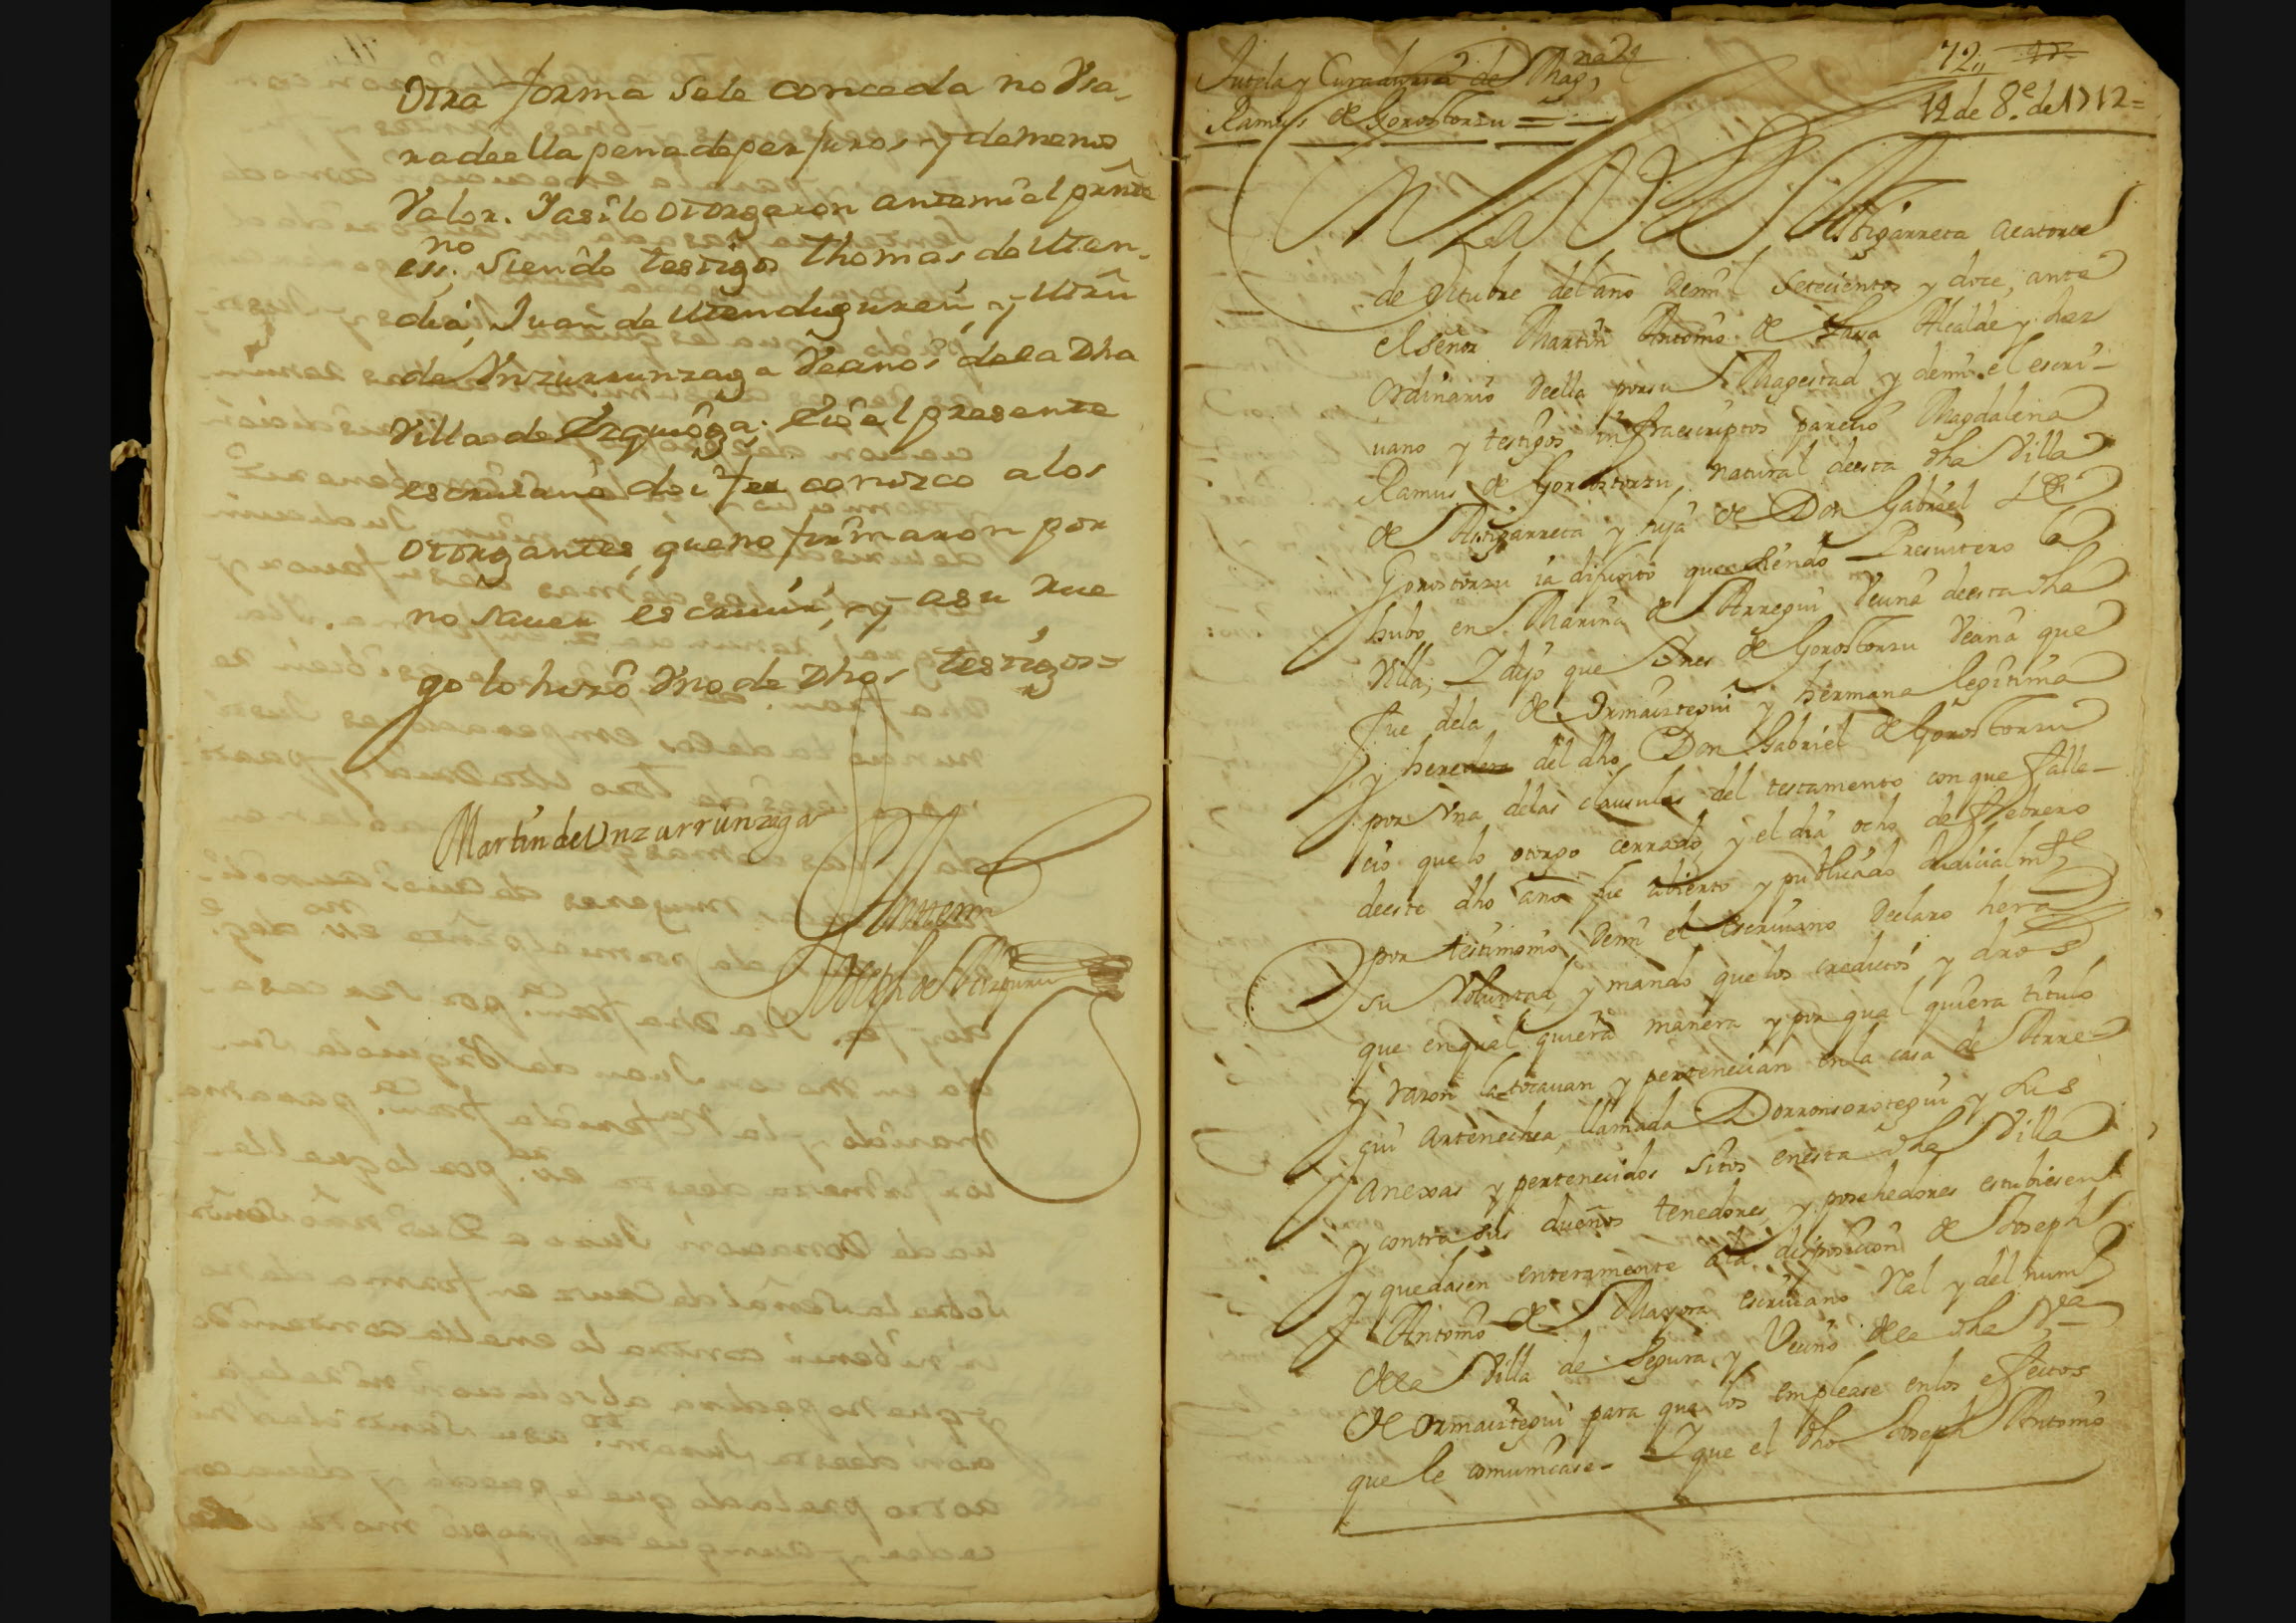 Otra forma sele conceda no Vsa-
radeella pena de perjuros y de menos
Valor. Y asi lo otorgaron antemi el pres.te
ess.no siendo testigos thomas de Uten-
dia, Juan de Utendiguren, y Mrn
de Vnzurrunzaga Veanos de la Dha
Villa de Ezquioga. Eio el presente
escriuano doi fee conozco a los
otorgantes, que no firmaron por
no sauer escriuir, y asu rue
go lo hizo Vno de Dhos testigos=
Martin de Unzurrunzaga
Antemi
Joseph de Aizpuru
Tutela y Curadoria de Mag.na
Ramus de Gorostorzu =
72,,
14 de 8.e de 1712=
En la Villa de Astigarreta acatorce
de Octubre del año Demil Setecientos y doce, ante
el señor Martin Antonio de Laya Alcalde y Juez
Ordinario deella por su Magestad, y demi el escri-
uano y testigos infraescriptos parecio Magdalena
Ramus de Gorostorzu, natural deesta dha Villa
de Astigarreta y hija de Don Gabriel de
Gorostorzu ia difunto que siendo Presuitero la
hubo en Marina de Arregui Vecina deesta dha
Villa; Y dijo que Ines de Gorostorzu Veana que
fue dela de Ormaiztegui y hermana legitima
y heredera del dho Don Gabriel de Gorostorzu
por Vna delas clausulas del testamento con que falle-
cio que lo otorgo cerrado, y el dia ocho de febrero
deeste dho año fue abierto y publicado Judicialm.te
por testimonio Demi el escriuano Declaro hera
su Voluntad, y mando que los creditos y dros
que en qual quiera manera y por qual quiera titulo
y razon la tocauan y pertenecian en la casa de Arre-
gui Artenechea llamada Dorronsorotegui y sus
Anexas y pertenecidos sitos enesta dha Villa
y contra sus dueños tenedores y posehedores estubiesen
y quedasen enteramente ala disposicion de Joseph
Antonio de Mayora escriuano Real y del num.o
dela Villa de Segura, y Vecino dela dha V.a
de Ormaiztegui para que los emplease enlos efectos
que le comunicase- Y que el dho Joseph Antonio